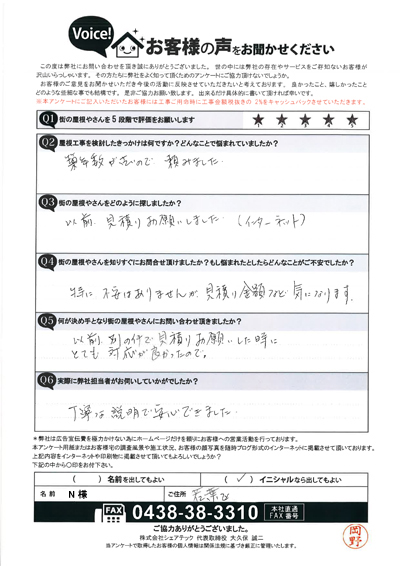 Voice!
お客様の声をお聞かせください
この度は弊社にお問い合わせを頂き誠にありがとうございました。 世の中には弊社の存在やサービスをご存知ないお客様が
沢山いらっしゃいます。 その方たちに弊社をよく知って頂くためのアンケートにご協力頂けないでしょうか。
お客様のご意見をお聞かせいただき今後の活動に反映させていただきたいと考えております。 良かったこと、嬉しかったこと
どのような些細な事でも結構です。 是非ご協力お願い致します。 出来るだけ具体的に書いて頂ければ幸いです。
※本アンケートにご記入いただいたお客様には工事ご用命時に工事金額税抜きの 2%をキャッシュバックさせていただきます。
Q1 街の屋根やさんを5段階で評価をお願いします ★ ★ ★ ★ ★
Q2 屋根工事を検討したきっかけは何ですか?どんなことで悩まれていましたか?
築年数が古いので 頼みました。
Q3 街の屋根やさんをどのように探しましたか?
以前、見積りお願いしました。 (インターネット)
Q4 街の屋根やさんを知りすぐにお問合せ頂けましたか?もし悩まれたとしたらどんなことがご不安でしたか?
特に 不安はありませんが、見積り金額など 気になります。
Q5 何が決め手となり街の屋根やさんにお問い合わせ頂きましたか?
以前、別の件で見積りお願いした時に
とても 対応が良かったので。
Q6 実際に弊社担当者がお伺いしていかがでしたか?
丁寧な説明で安心できました。
*弊社は広告宣伝費を極力かけない為にホームページだけを頼りにお客様への営業活動を行っております。
本アンケート用紙またはお客様宅の調査風景や施工状況、お客様の顔写真を随時ブログ形式のインターネットに掲載させて頂いております。
上記内容をインターネットや印刷物に掲載させて頂いてもよろしいでしょうか?
下記の中から○印をお付下さい。
( ) 名前を出してもよい ( ✓ ) イニシャルなら出してもよい
名 前 N 様 ご住所
FAX 0438-38-3310 本社直通 FAX 番号
ご協力ありがとうございました。
株式会社シェアテック 代表取締役 大久保 誠二
当アンケートで取得したお客様の個人情報は関係法規に基づき厳正に管理いたします。
岡野